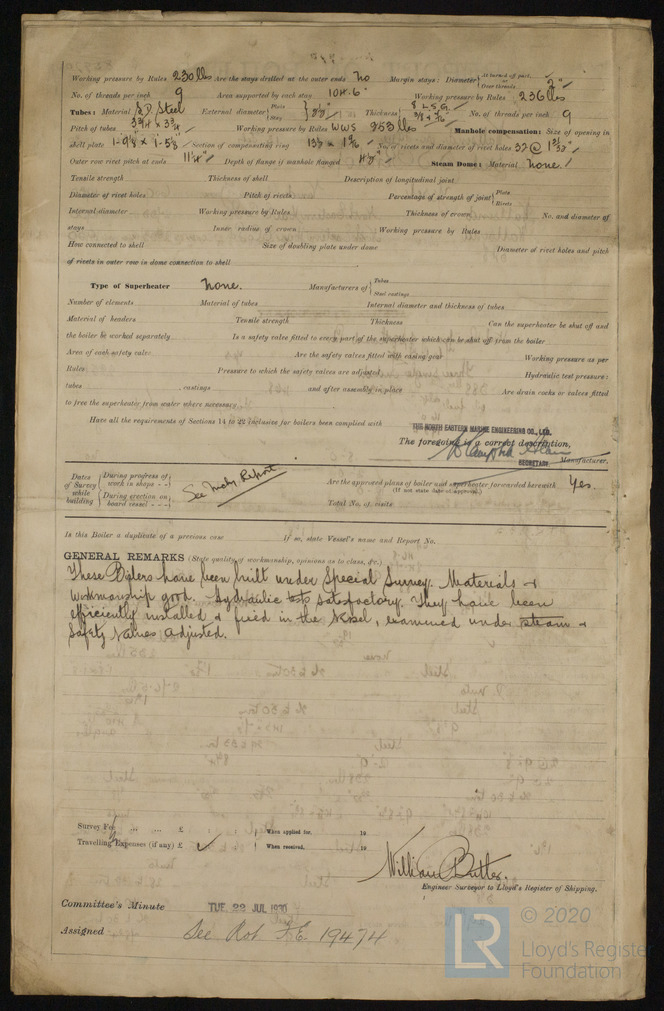 Working pressure by Rules 230 lbs Are the stays drilled at the outer ends No Margin stays: Diameter { At turned off part, or Over threads 2"
No. of threads per inch 9 Area supported by each stay Working pressure by Rules 236 lbs
Tubes: Material S.D. Steel External diameter { Plain Stay Thickness { 8 L.S.G. No. of threads per inch 9
Pitch of tubes Working pressure by Rules WWS 253 lbs Manhole compensation: Size of opening in
shell plate Section of compensating ring No. of rivets and diameter of rivet holes
Outer row rivet pitch at ends Depth of flange if manhole flanged Steam Dome: Material None.
Tensile strength Thickness of shell Description of longitudinal joint
Diameter of rivet holes Pitch of rivets Percentage of strength of joint { Plate Rivets
Internal diameter Working pressure by Rules Thickness of crown No. and diameter of
stays Inner radius of crown Working pressure by Rules
How connected to shell Size of doubling plate under dome Diameter of rivet holes and pitch
of rivets in outer row in dome connection to shell
Type of Superheater None. Manufacturers of { Tubes Steel castings
Number of elements Material of tubes Internal diameter and thickness of tubes
Material of headers Tensile strength Thickness Can the superheater be shut off and
the boiler be worked separately Is a safety valve fitted to every part of the superheater which can be shut off from the boiler
Area of each safety valve Are the safety valves fitted with easing gear Working pressure as per
Rules Pressure to which the safety valves are adjusted Hydraulic test pressure:
tubes castings and after assembly in place Are drain cocks or valves fitted
to free the superheater from water where necessary
Have all the requirements of Sections 14 to 22 inclusive for boilers been complied with
THE NORTH EASTERN MARINE ENGINEERING CO., LTD.
The foregoing is a correct description,
SECRETARY Manufacturer.
Dates of Survey while building { During progress of work in shops - - During erection on board vessel - - - See Mchy Report
Are the approved plans of boiler and superheater forwarded herewith Yes.
(If not state date of approval.)
Total No. of visits
Is this Boiler a duplicate of a previous case If so, state Vessel's name and Report No.
GENERAL REMARKS (State quality of workmanship, opinions as to class, &c.)
These Boilers have been built under Special Survey. Materials &
workmanship good. Hydraulic tests satisfactory. They have been
efficiently installed & fixed in the Vessel, examined under steam &
Safety Valves adjusted.
Survey Fee ... ... £ When applied for, 19
Travelling Expenses (if any) £ When received, 19
William Butler.
Engineer Surveyor to Lloyd's Register of Shipping.
Committee's Minute TUE 22 JUL 1930
Assigned See Rpt F.E. 19474
LR © 2020
Lloyd's Register
Foundation